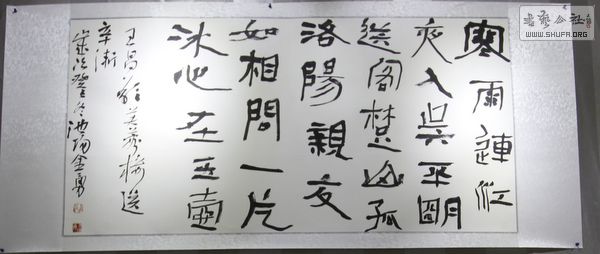 寒雨連江
夜入吳平明
送客楚山孤
洛陽親友
如相問一片
冰心在玉壺
王昌齡芙蓉樓送
辛漸
歲次癸 金勇
書藝公社
WWW.SHUFA.ORG